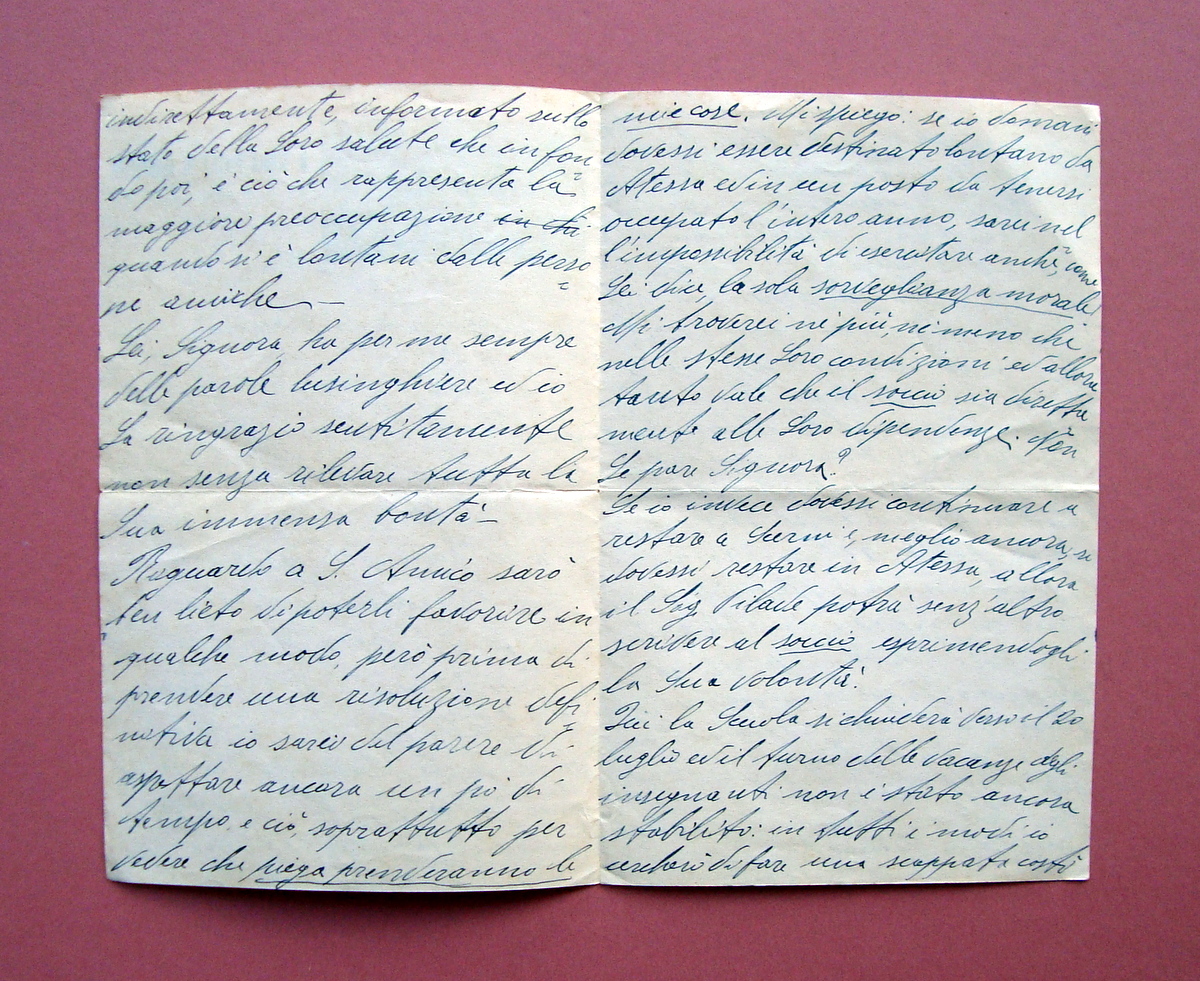 indirettamente, informato sullo
stato della Loro salute che in fon=
do poi, è ciò che rappresenta la
maggiore preoccupazione in chi
quando si è lontani dalle perso=
ne amiche —
Lei, Signora, ha per me sempre
delle parole lusinghiere ed io
La ringrazio sentitamente
non senza rilevare tutta la
Sua immensa bontà —
Riguardo a S. Amico sarò
ben lieto di poterli favorire in
qualche modo, però prima di
prendere una risoluzione defi=
nitiva io sarei del parere di
aspettare ancora un pò di
tempo e ciò, soprattutto per
vedere che piega prenderanno le
mie cose. Mi spiego: se io domani
dovessi essere destinato lontano da
Atessa ed in un posto da tenersi
occupato l'intero anno, sarei nel
l'impossibilità di esercitare anche, come
Lei dice, la sola sorveglianza morale.
Mi troverei nè più, nè meno che
nelle stesse Loro condizioni ed allora
tanto vale che il soccio sia diretta
mente alle Loro dipendenze. Non
Le pare Signora?
Se io invece dovessi continuare a
restare a Scerni e, meglio ancora, se
dovessi restare in Atessa, allora
il Sig. Pilade potrà senz'altro
scrivere al soccio esprimendogli
la Sua volontà.
Qui la Scuola si chiuderà verso il 20
luglio ed il turno delle vacanze degli
insegnanti non è stato ancora
stabilito: in tutti i modi io
cercherò di fare una scappata costì